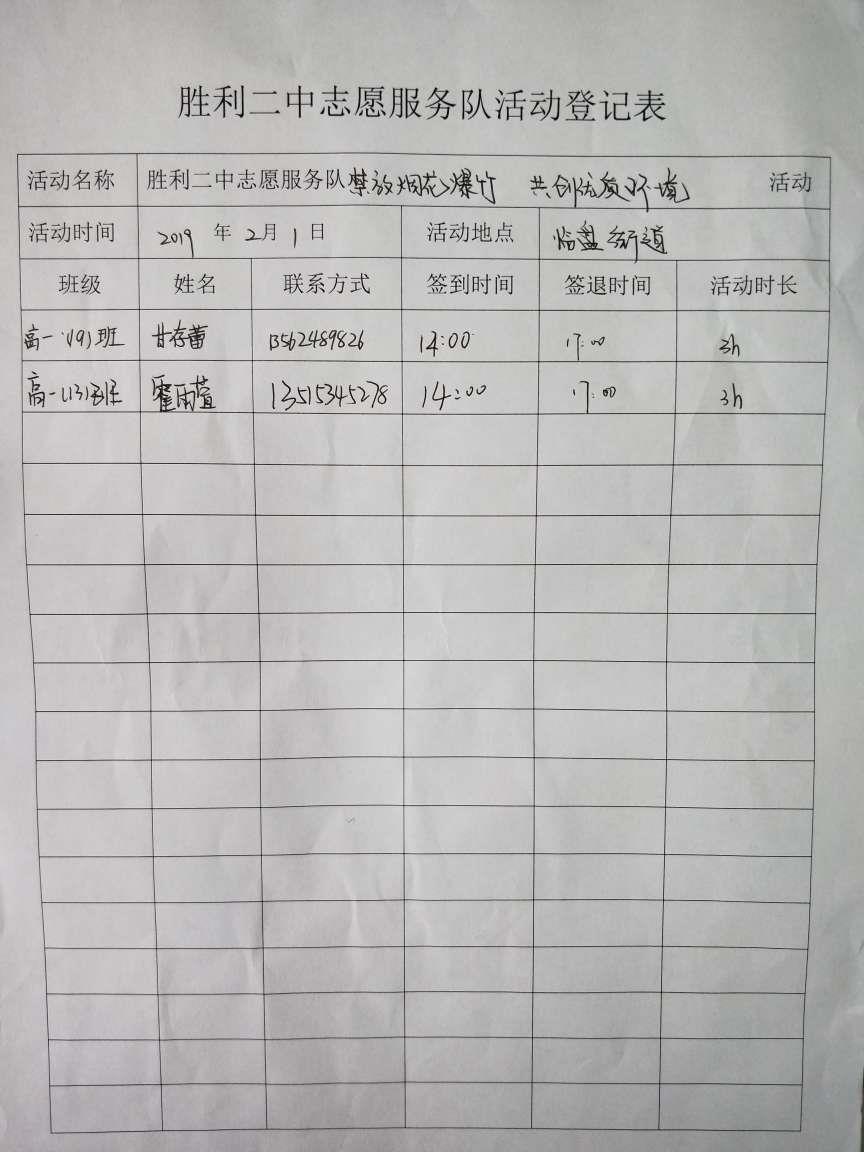 胜利二中志愿服务队活动登记表
活动名称 胜利二中志愿服务队禁放烟花爆竹 共创优质环境 活动
活动时间 2019 年 2月 1 日 活动地点 临盘街道
班级 姓名 联系方式 签到时间 签退时间 活动时长
高一(19)班 甘存蕾 13562489826 14:00 17:00 3h
高一(13)班 霍雨萱 13515345278 14:00 17:00 3h